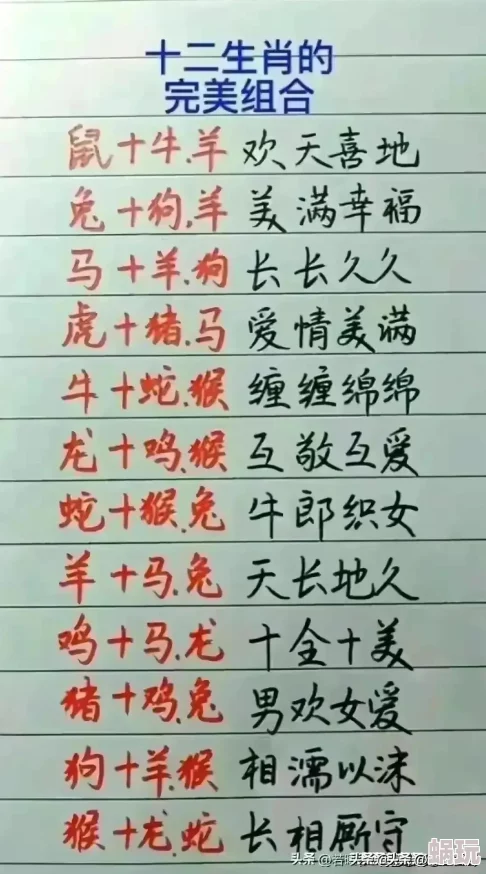 十二生肖的
完美组合
鼠十牛.羊 欢天喜地
兔十狗.羊 美满幸福
马十羊.狗 长长久久
虎十猪.马 爱情美满
牛十蛇.猴 缠缠绵绵
龙十鸡.猴 互敬互爱
蛇十猴.兔 牛郎织女
羊十马.兔 天长地久
鸡十马.龙 十全十美
猪十鸡.兔 男欢女爱
狗十羊.猴 相濡以沫
猴十龙.蛇 长相厮守
蜗玩
头条